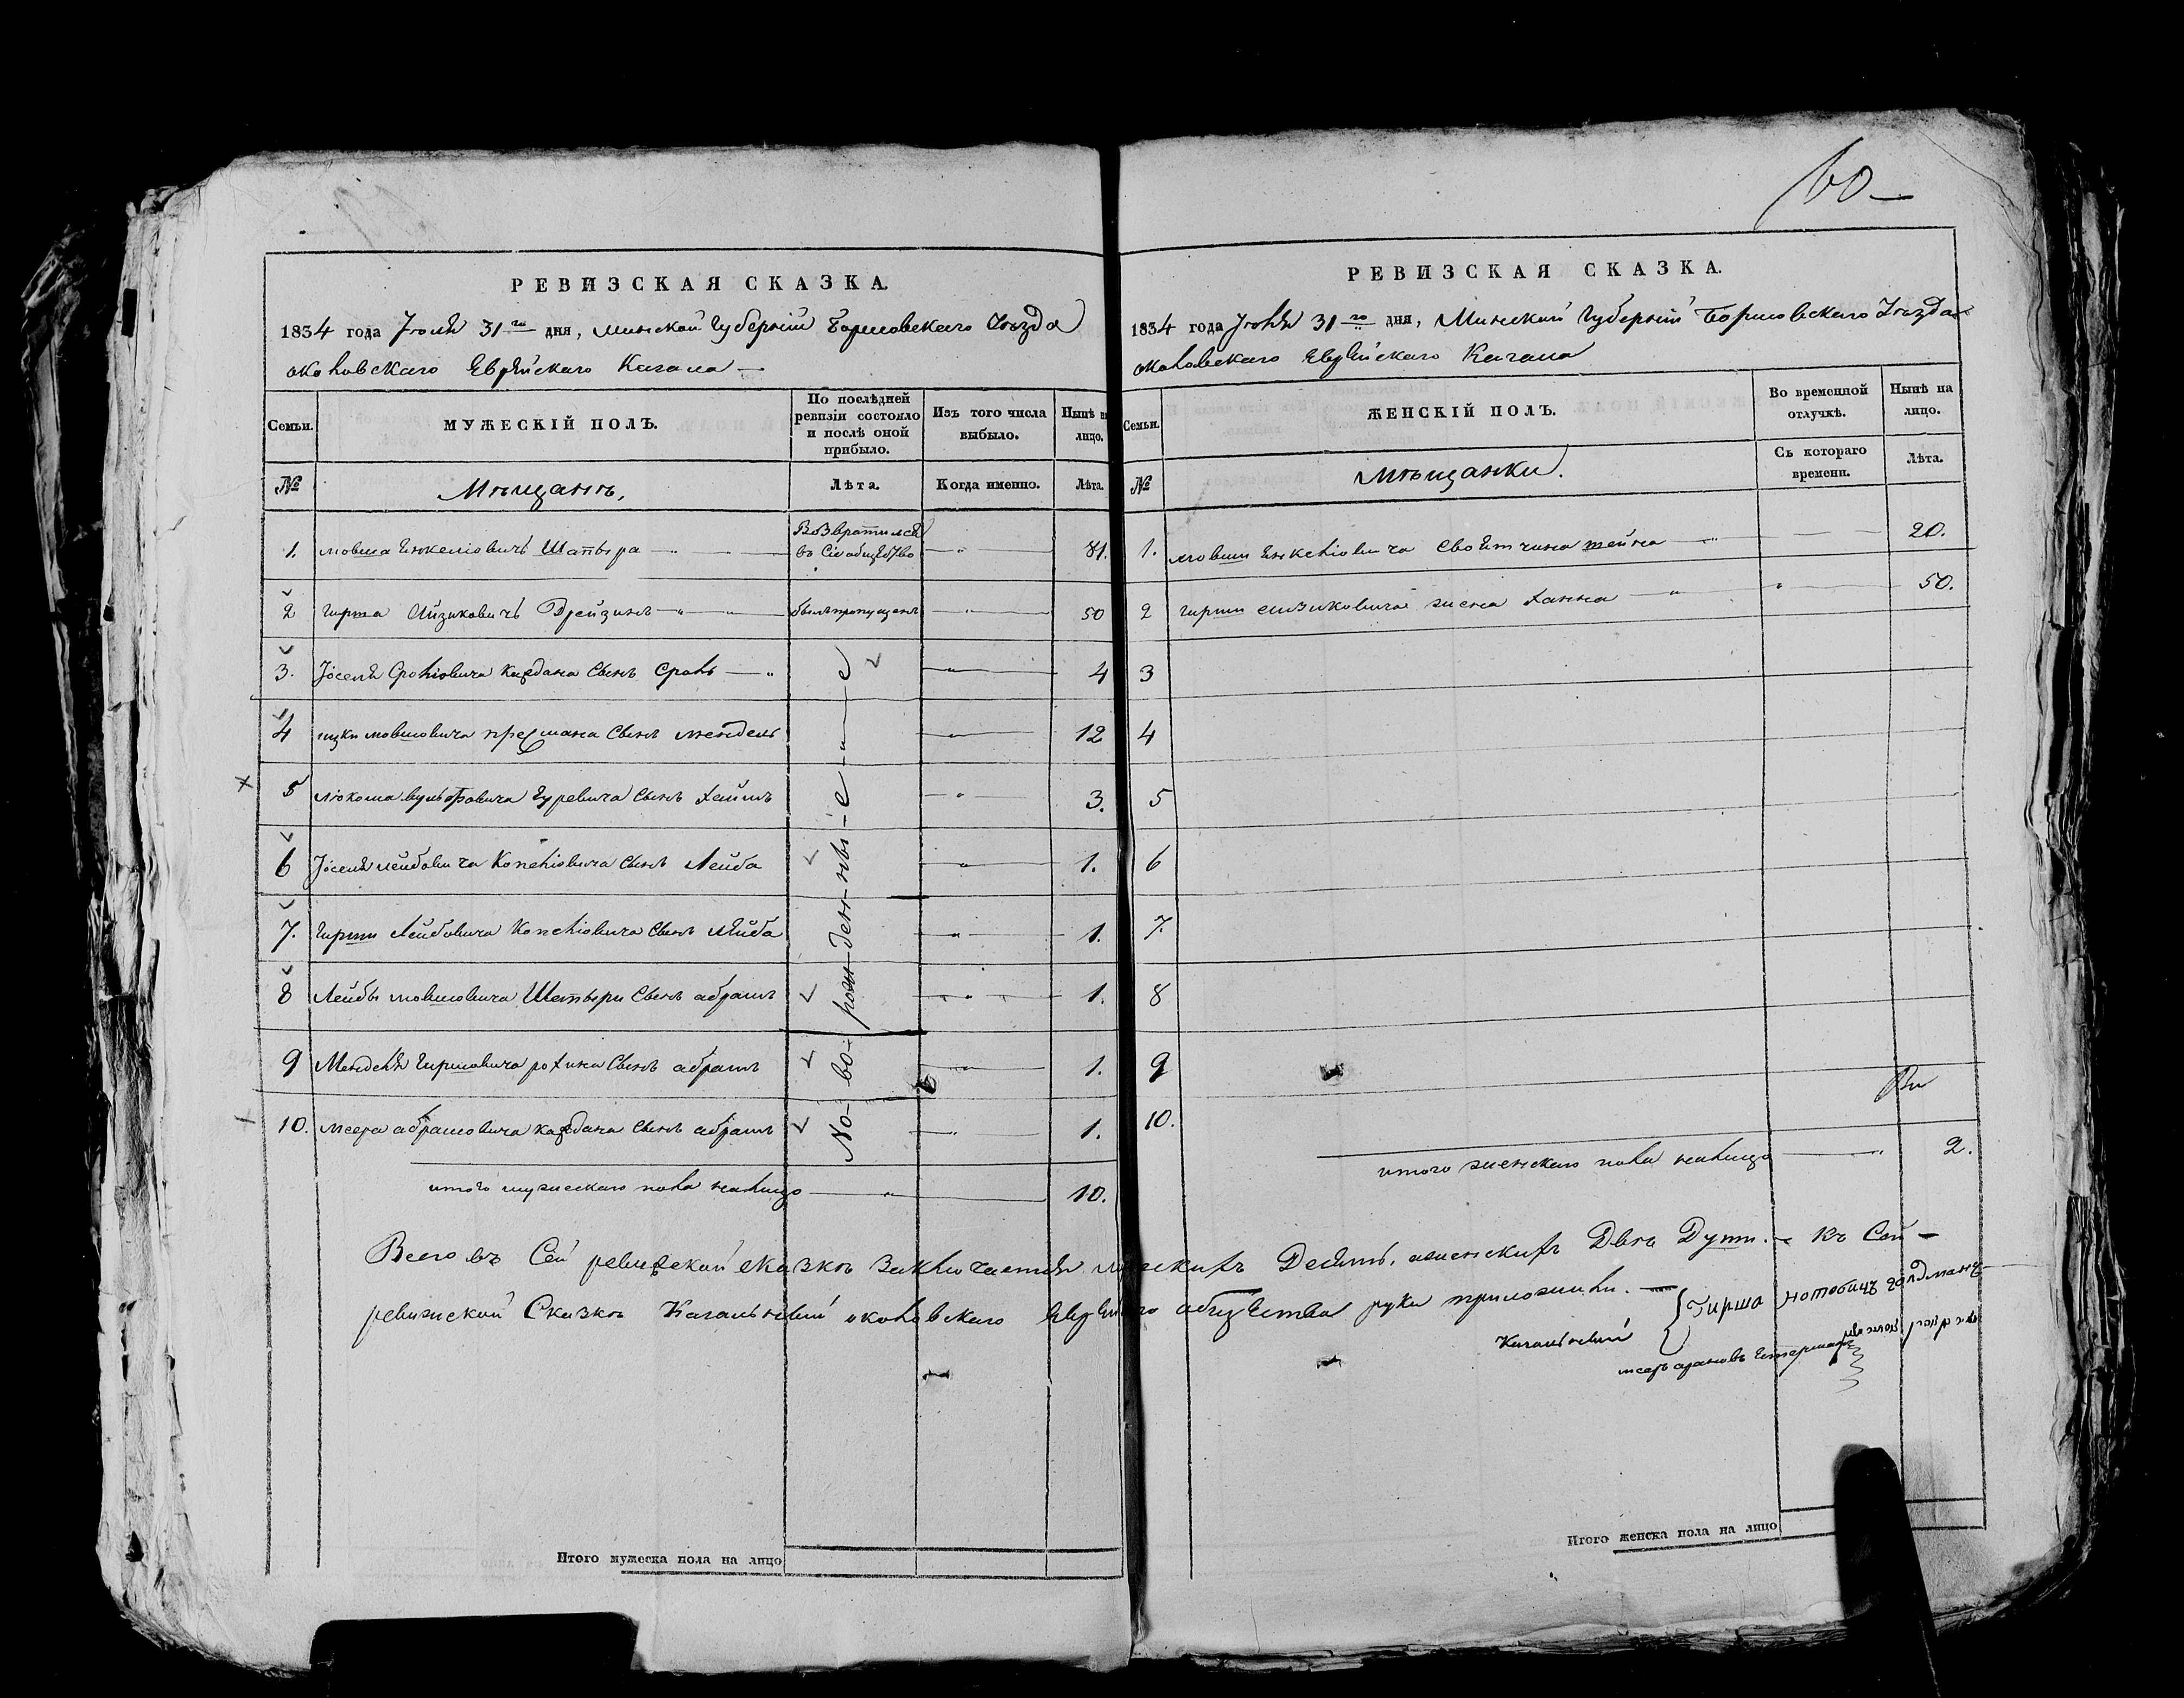 60
РЕВИЗСКАЯ СКАЗКА.
1834 года Июля 31го дня, Минской Губерніи Борисовскаго Уѣзда
околовскаго Еврейскаго Кагала
Семьи. МУЖЕСКІЙ ПОЛЪ. По послѣдней ревизіи состояло и послѣ оной прибыло. Изъ того числа выбыло. Нынѣ на лицо.
№ Мѣщанъ, Лѣта. Когда именно. Лѣта.
1. мовша Янкеліовичъ Шапыра Возвратился въ Сіе общество 81.
2 гирша Айзиковичъ Дрейзинъ былъ пропущенъ 50
3. Іоселя Сроліовича Кардана Сынъ Сроль 4
4 ицки мовшовича Сынъ мендель 12
5 вульфовича Гуревича Сынъ хаимъ 3.
6 Іоселя лейбовича Копеліовича Сынъ Лейба 1.
7. Гирши Лейбовича Копеліовича Сынъ лейба 1.
8 Лейбы мовшовича Сынъ абрамъ 1.
9 Менделя Гиршовича рохина Сынъ абрамъ 1.
10. меера абрамовича Кардана Сынъ абрамъ 1.
Но-во-рож-ден-ны-е
итого мужескаго пола налицо 10.
Итого мужеска пола на лицо
РЕВИЗСКАЯ СКАЗКА.
1834 года Июля 31го дня, Минской Губерніи Борисовскаго Уѣзда
околовскаго Еврейскаго Кагала
Семьи. ЖЕНСКІЙ ПОЛЪ. Во временной отлучкѣ. Нынѣ на лицо.
№ Мѣщанки. Съ котораго времени. Лѣта.
1. мовши Янкеліовича 20.
2 гирши айзиковича жена ханна 50.
3
4
5
6
7.
8
9
10.
итого женскаго пола налицо 2.
Всего въ Сей ревизской сказкѣ заключается мужскихъ Десять, женскихъ Двѣ Души. Къ Сей
ревизской Сказкѣ Кагальный околовскаго Еврейскаго общества руки приложили. Гирша нотовичъ голдманъ
Кагальный
Итого женска пола на лицо